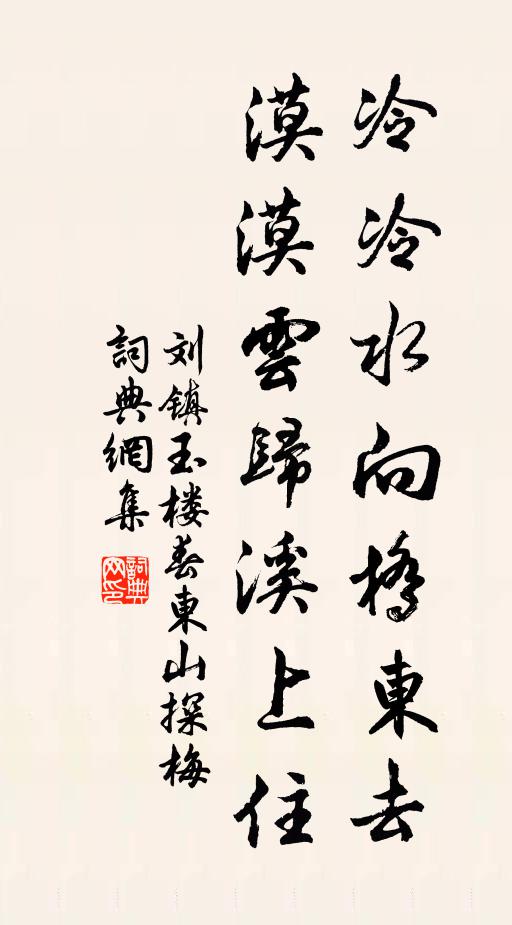 冷冷水向橋東去
漠漠雲歸溪上住
刘镇玉楼春東山探梅
詞典網集
詞典网印